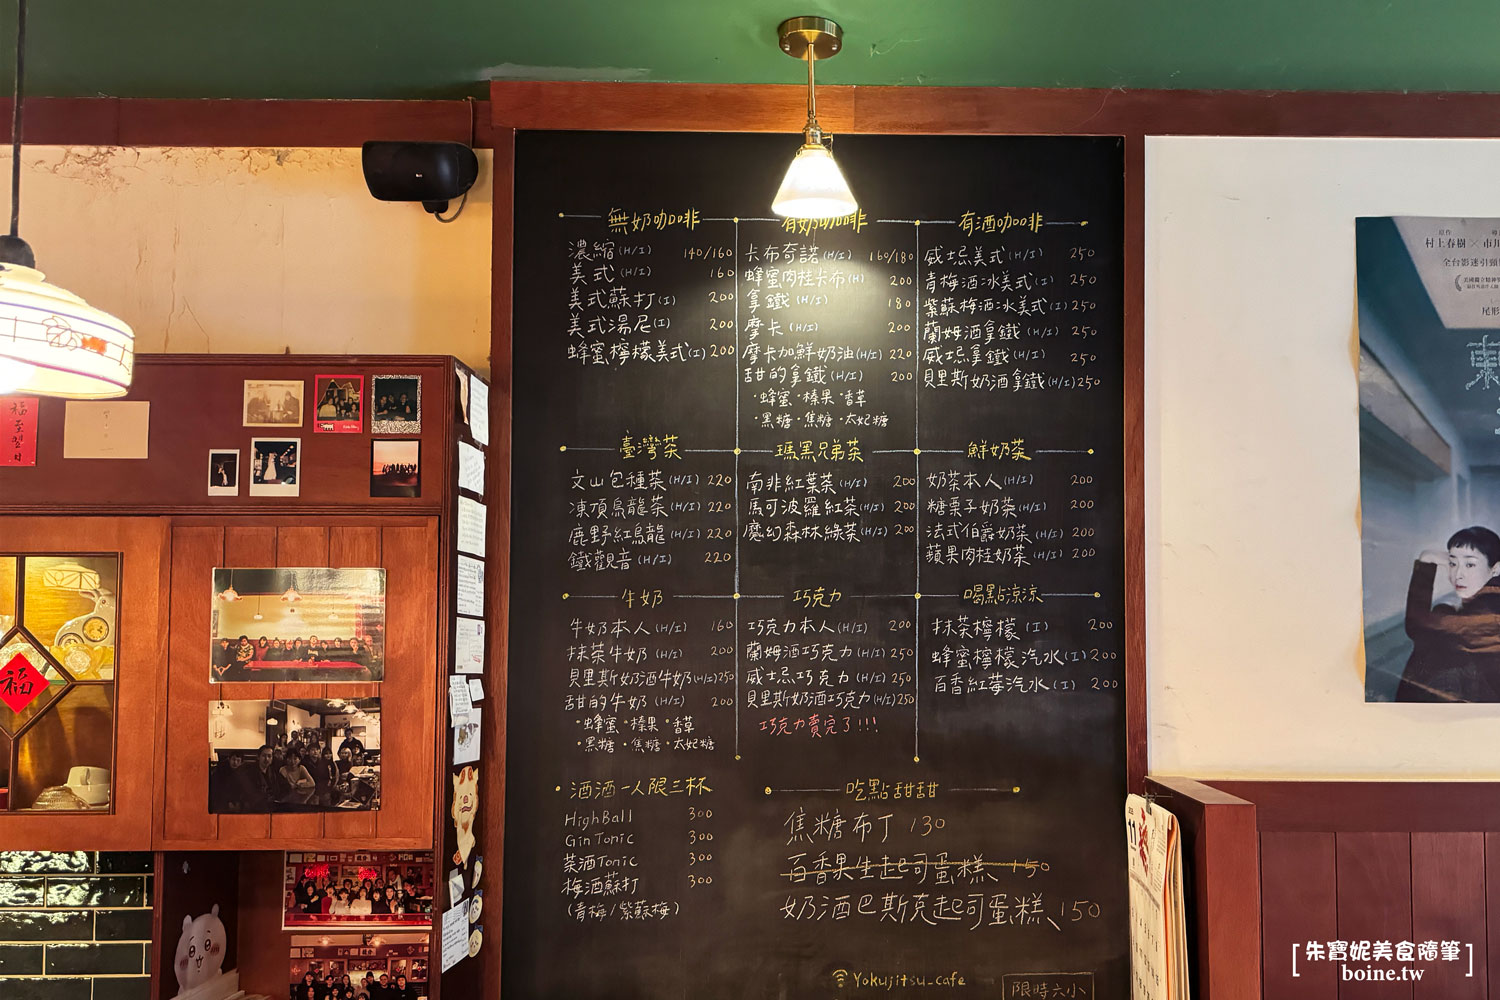 無奶咖啡
濃縮 (H/I) 140/160
美式 (H/I) 160
美式蘇打 (I) 200
美式湯尼 (I) 200
蜂蜜檸檬美式 (I) 200
有奶咖啡
卡布奇諾 (H/I) 160/180
蜂蜜肉桂卡布 (H) 200
拿鐵 (H/I) 180
摩卡 (H/I) 200
摩卡加鮮奶油 (H/I) 220
甜的拿鐵 (H/I) 200
・蜂蜜・榛果・香草
・黑糖・焦糖・太妃糖
有酒咖啡
威士忌美式 (H/I) 250
青梅酒冰美式 (I) 250
紫蘇梅酒冰美式 (I) 250
蘭姆酒拿鐵 (H/I) 250
威士忌拿鐵 (H/I) 250
貝里斯奶酒拿鐵 (H/I) 250
臺灣茶
文山包種茶 (H/I) 220
凍頂烏龍茶 (H/I) 220
鹿野紅烏龍 (H/I) 220
鐵觀音 (H/I) 220
瑪黑兄弟茶
南非紅葉茶 (H/I) 200
馬可波羅紅茶 (H/I) 200
魔幻森林綠茶 (H/I) 200
鮮奶茶
奶茶本人 (H/I) 200
糖栗子奶茶 (H/I) 200
法式伯爵奶茶 (H/I) 200
蘋果肉桂奶茶 (H/I) 200
牛奶
牛奶本人 (H/I) 160
抹茶牛奶 (H/I) 200
貝里斯奶酒牛奶 (H/I) 250
甜的牛奶 (H/I) 200
・蜂蜜・榛果・香草
・黑糖・焦糖・太妃糖
巧克力
巧克力本人 (H/I) 200
蘭姆酒巧克力 (H/I) 250
威士忌巧克力 (H/I) 250
貝里斯奶酒巧克力 (H/I) 250
巧克力賣完了!!!
喝點涼涼
抹茶檸檬 (I) 200
蜂蜜檸檬汽水 (I) 200
百香紅莓汽水 (I) 200
・酒酒一人限三杯
HighBall 300
Gin Tonic 300
茶酒Tonic 300
梅酒蘇打 300
(青梅/紫蘇梅)
吃點甜甜
焦糖布丁 130
百香果生起司蛋糕 150
奶酒巴斯克起司蛋糕 150
Yokujitsu_cafe
限時六小
村上春樹 × 市川
福
11
[朱寶妮美食隨筆]
boine.tw